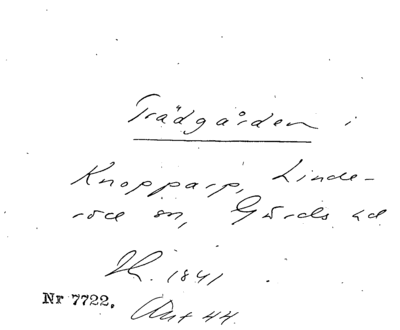 Trädgården i
Knopparp, Linde-
röd sn, Gärds hd
H. 1841
Nr 7722.
Ant 44.